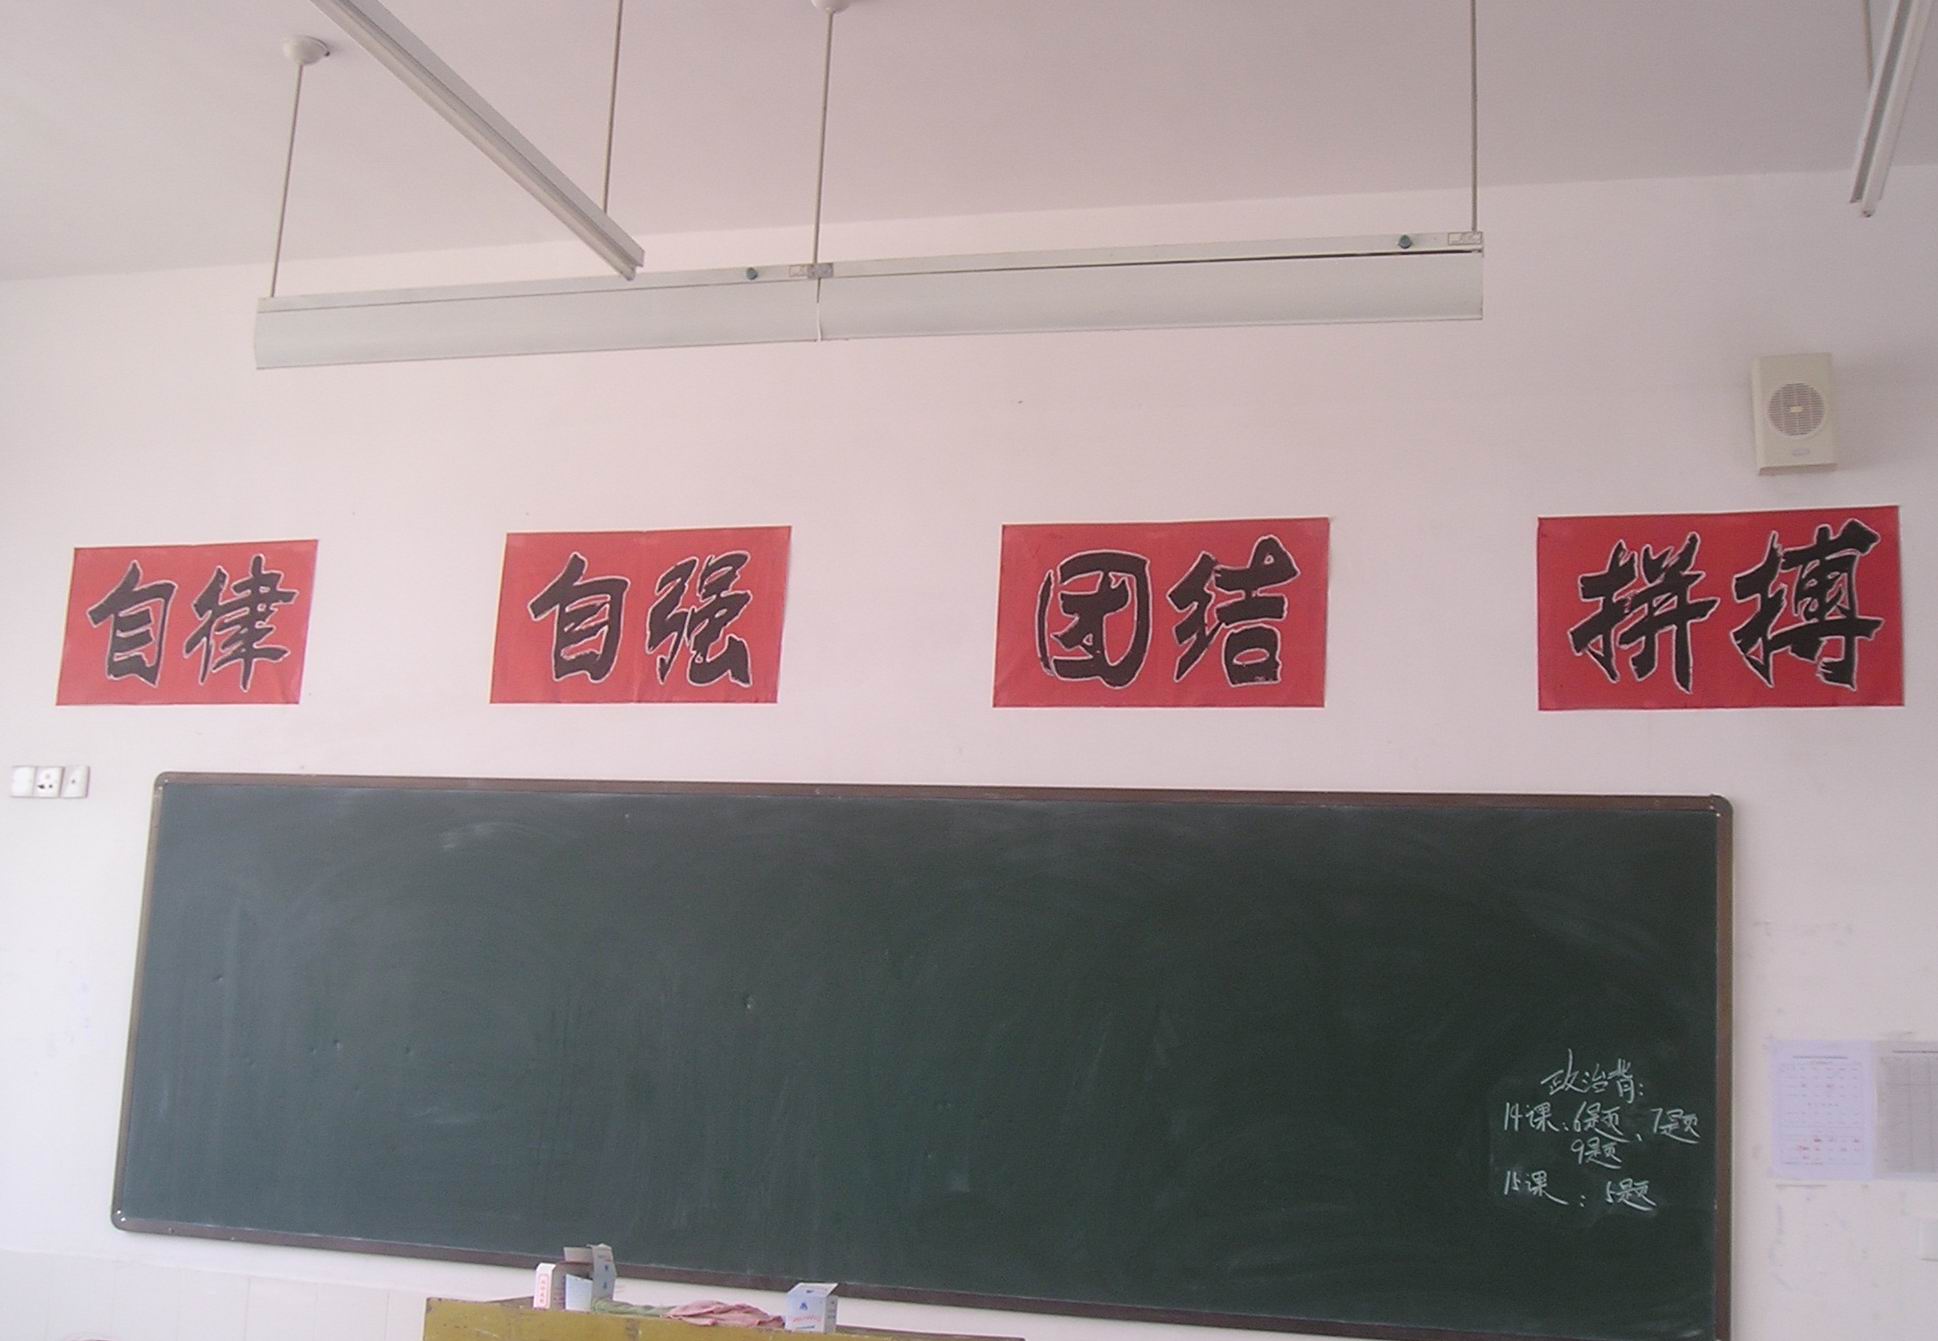 自律 自强 团结 拼搏
政治背:
14课:6题、7题
9题
15课:5题